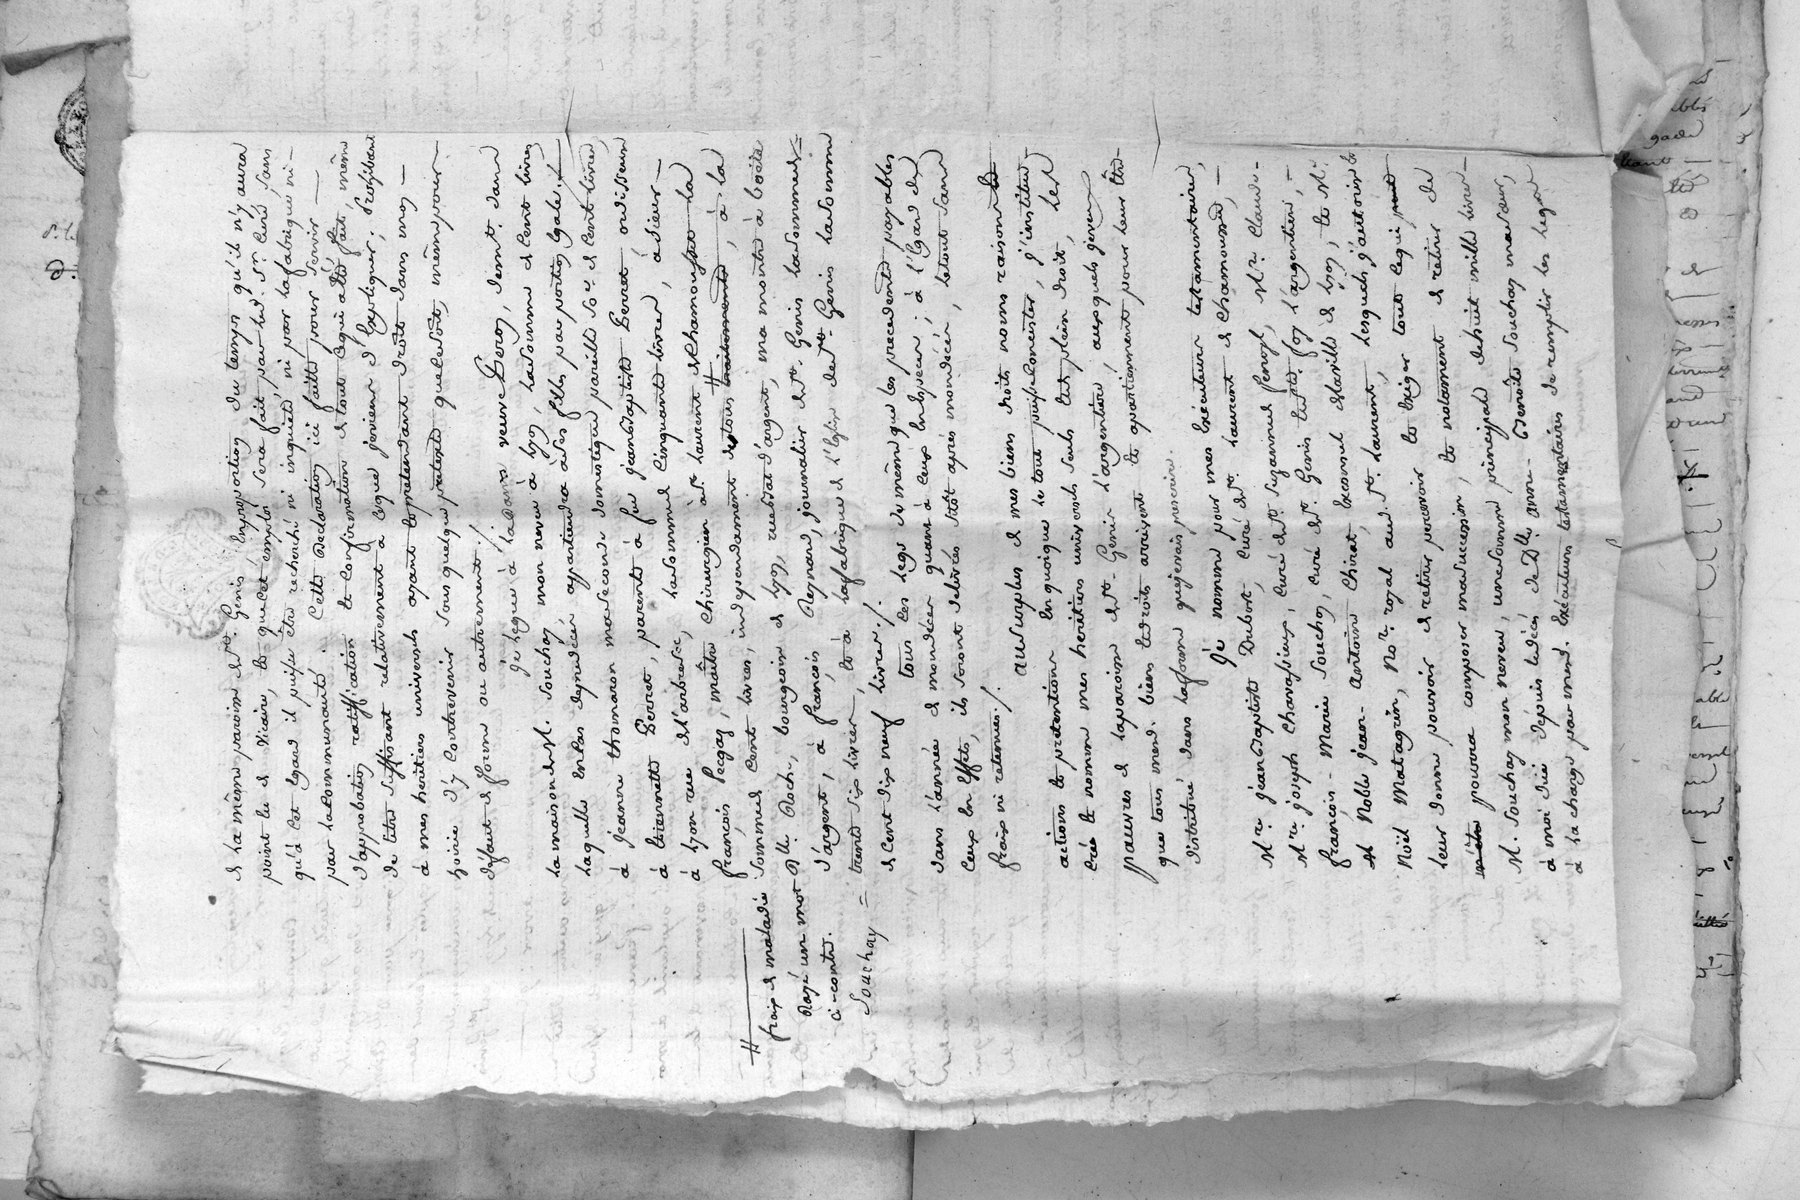 de la même paroisse de St. Genis à proportion du temps qu'il n'y aura
point eu de vicaire, et que cet emploi sera fait par led. Sr. curé sans
qu'à cet égard il puisse être recherché ni inquiété, ni par la fabrique, ni
par la communauté. Cette déclaration ici faite pour servir
d'approbation, ratiffication et confirmation de tout ce qui a été fait, même
de titre suffisant relativement à ce que je viens d'expliquer; prohibant
à mes héritiers universels ayant et prétendant droit dans mon
hoirie d'y contrevenir sous quelque prétexte que ce soit, même pour
défaut de forme ou autrement /.
je lègue à la dame veuve Deroy, demt. dans
la maison de M. Souchay mon neveu à Lyon, la somme de cent livres
laquelle en cas de prédécès appartiendra à ses filles par portion égale. /
à Jeanne Thomason ma seconde domestique pareille So.e de cent livres,
à Etiennette Perret, parente à feu Jean Baptiste Perret ourdisseur
à Lyon rue de l'arbresec, la somme de cinquante livres, à sieur
françois Peczay, maitre chirurgien à St. Laurent de Chamousset la
somme de cent livres, independament de tous # traitements, à la
Dlle. Roche, bourgeoise de Lyon, rue Bât d'argent, ma montre à boite
d'argent, à françois Reynard, journalier de St. Genis la somme de
trente six livres, et à la fabrique de l'Eglise de St. Genis la somme
de cent dix neuf livres /.
tous ces legs de même que les precedents payables
dans l'année de mon décès quant à ceux en especes; à l'égard de
ceux en effets, ils seront delivrés sitôt apres mon décès, le tout sans
fraix ni retenues /.
au surplus de mes biens droits noms raisons et
actions et prétentions en quoique le tout puisse consister, j'institue
crée et nomme mes heritiers universels seuls et de plein droit, les
pauvres de la paroisse de St. Genis l'argentiere, auxquels je veux
que tous mesd. biens et droits arrivent et apartiennent pour leur être
distribué dans la forme que je vais prescrire.
Je nomme pour mes exécuteurs testamentaires,
Mre. Jean Baptiste Dubost, curé de St. Laurent de Chamousset,
Mre. Joseph Chavassieux, curé de Ste. Suzanne de Senozl, Mr. Claude-
françois-Marie Souchay, curé de St. Genis et de Ste. foy l'argentiere,
M Noble Jean-Antoine Chirat, exconsul de la ville de Lyon, et Mr.
Noël Matagrin, Nore. royal aud. St. Laurent, lesquels j'autorise &
leur donne pouvoir de retirer percevoir et exiger tout ce qui peut
en être pourra composer ma succession, et notament de retirer de
M. Souchay mon neveu, une somme principale de huit mille livres
à moi düe depuis le décès de Dlle. anne-Benoite Souchay ma sœur,
à la charge par mesd. exécuteurs testamentaires de remplir les legs
#
fraix de maladie
Rayé un mot
ci-contre.
Souchay =